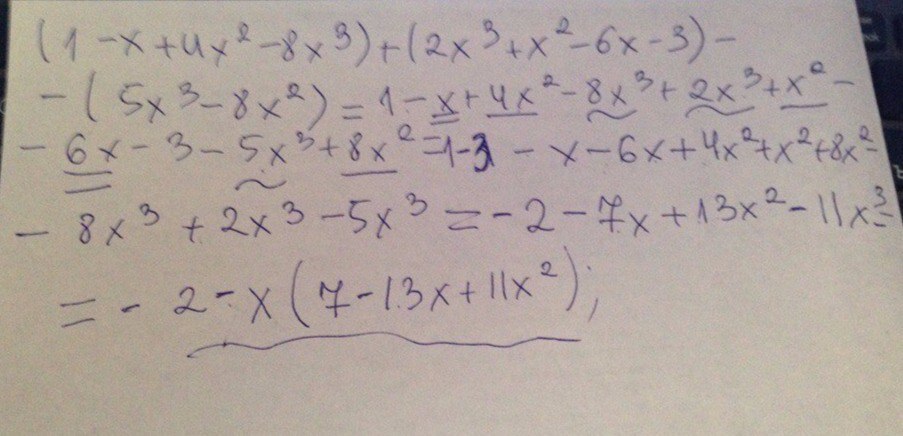 (1 - x + 4x² - 8x³) + (2x³ + x² - 6x - 3) -
- (5x³ - 8x²) = 1 - x + 4x² - 8x³ + 2x³ + x² -
- 6x - 3 - 5x³ + 8x² = 1 - 3 - x - 6x + 4x² + x² + 8x² -
- 8x³ + 2x³ - 5x³ = - 2 - 7x + 13x² - 11x³ =
= - 2 - x (7 - 13x + 11x²);